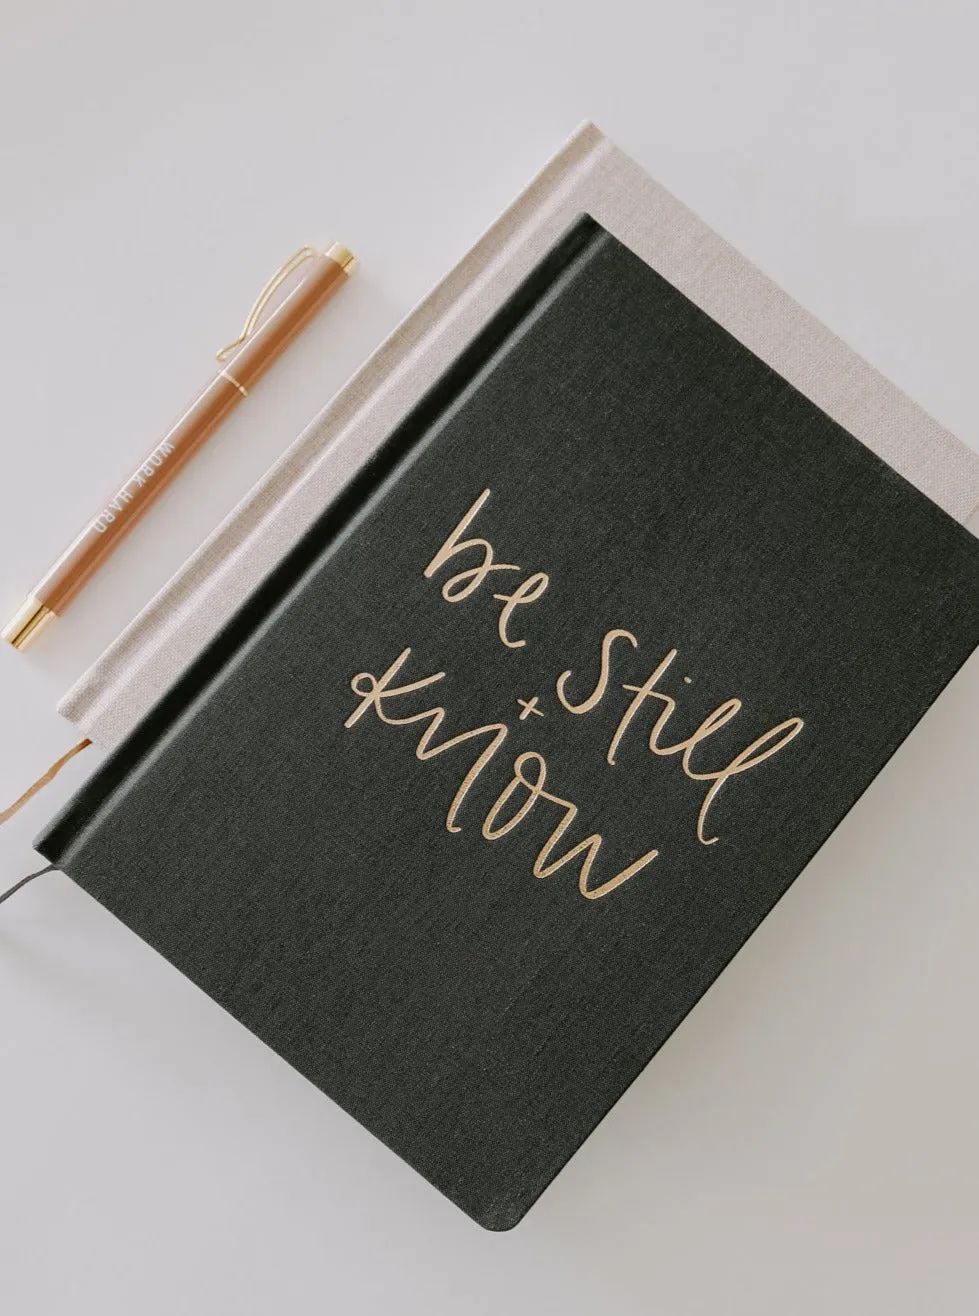 WORK HARD
be still
+
know